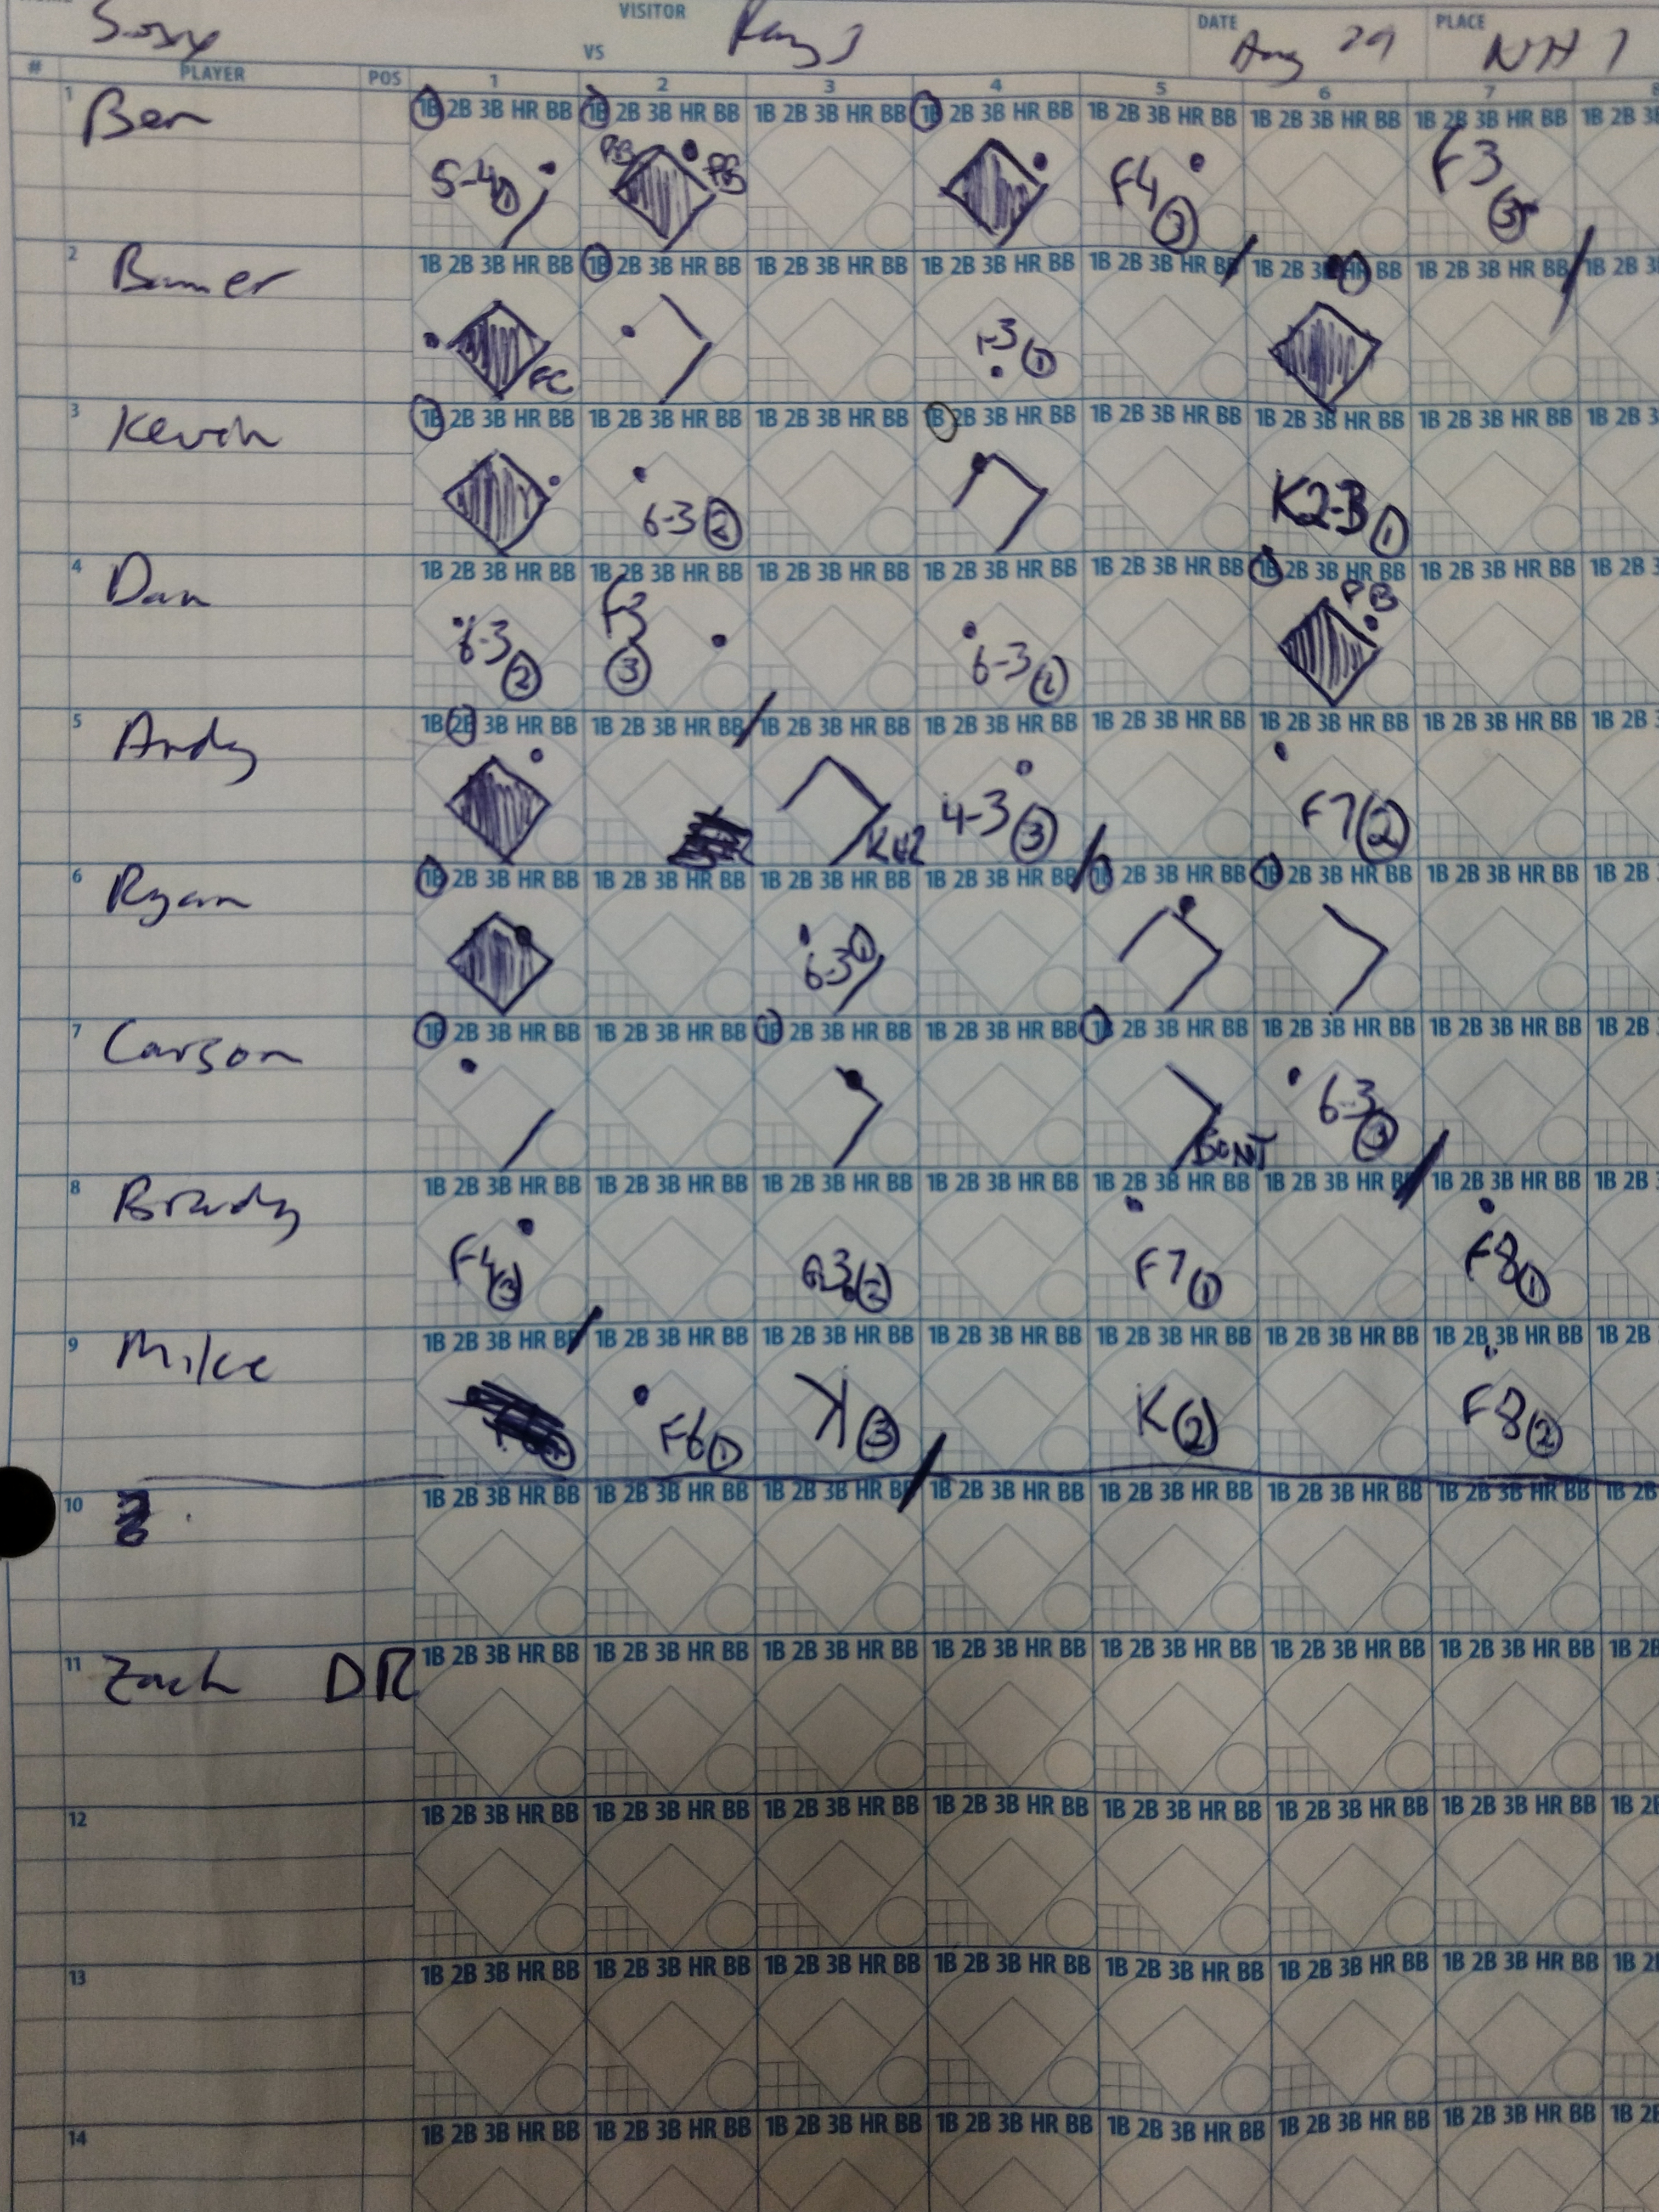 VISITOR DATE PLACE
VS Aug 29
# PLAYER POS 1 2 3 4 5 6 7 8
1 Ben 1B 2B 3B HR BB 1B 2B 3B HR BB 1B 2B 3B HR BB 1B 2B 3B HR BB 1B 2B 3B HR BB 1B 2B 3B HR BB 1B 2B 3B HR BB 1B 2B 3B
5-4 1 PB PB F4 3 F3 3
2 1B 2B 3B HR BB 1B 2B 3B HR BB 1B 2B 3B HR BB 1B 2B 3B HR BB 1B 2B 3B HR BB 1B 2B 3B HR BB 1B 2B 3B HR BB 1B 2B 3B
FC 1-3 1
3 Kevin 1B 2B 3B HR BB 1B 2B 3B HR BB 1B 2B 3B HR BB 1B 2B 3B HR BB 1B 2B 3B HR BB 1B 2B 3B HR BB 1B 2B 3B HR BB 1B 2B 3
6-3 2 K2-3 1
4 Dan 1B 2B 3B HR BB 1B 2B 3B HR BB 1B 2B 3B HR BB 1B 2B 3B HR BB 1B 2B 3B HR BB 1B 2B 3B HR BB 1B 2B 3B HR BB 1B 2B 3
6-3 2 F3 3 6-3 2 PB
5 Andy 1B 2B 3B HR BB 1B 2B 3B HR BB 1B 2B 3B HR BB 1B 2B 3B HR BB 1B 2B 3B HR BB 1B 2B 3B HR BB 1B 2B 3B HR BB 1B 2B
4-3 3 F7 2
6 Ryan 1B 2B 3B HR BB 1B 2B 3B HR BB 1B 2B 3B HR BB 1B 2B 3B HR BB 1B 2B 3B HR BB 1B 2B 3B HR BB 1B 2B 3B HR BB 1B 2B
6-3 1
7 Carson 1B 2B 3B HR BB 1B 2B 3B HR BB 1B 2B 3B HR BB 1B 2B 3B HR BB 1B 2B 3B HR BB 1B 2B 3B HR BB 1B 2B 3B HR BB 1B 2B
6-3 3
8 Brady 1B 2B 3B HR BB 1B 2B 3B HR BB 1B 2B 3B HR BB 1B 2B 3B HR BB 1B 2B 3B HR BB 1B 2B 3B HR BB 1B 2B 3B HR BB 1B 2B
F4 3 F7 1 F8 1
9 Mike 1B 2B 3B HR BB 1B 2B 3B HR BB 1B 2B 3B HR BB 1B 2B 3B HR BB 1B 2B 3B HR BB 1B 2B 3B HR BB 1B 2B 3B HR BB 1B 2B
F6 1 K 3 K 2 F8 2
10 1B 2B 3B HR BB 1B 2B 3B HR BB 1B 2B 3B HR BB 1B 2B 3B HR BB 1B 2B 3B HR BB 1B 2B 3B HR BB 1B 2B 3B HR BB 1B 2B
11 Zach DR 1B 2B 3B HR BB 1B 2B 3B HR BB 1B 2B 3B HR BB 1B 2B 3B HR BB 1B 2B 3B HR BB 1B 2B 3B HR BB 1B 2B 3B HR BB 1B 2B
12 1B 2B 3B HR BB 1B 2B 3B HR BB 1B 2B 3B HR BB 1B 2B 3B HR BB 1B 2B 3B HR BB 1B 2B 3B HR BB 1B 2B 3B HR BB 1B 2B
13 1B 2B 3B HR BB 1B 2B 3B HR BB 1B 2B 3B HR BB 1B 2B 3B HR BB 1B 2B 3B HR BB 1B 2B 3B HR BB 1B 2B 3B HR BB 1B 2B
14 1B 2B 3B HR BB 1B 2B 3B HR BB 1B 2B 3B HR BB 1B 2B 3B HR BB 1B 2B 3B HR BB 1B 2B 3B HR BB 1B 2B 3B HR BB 1B 2B